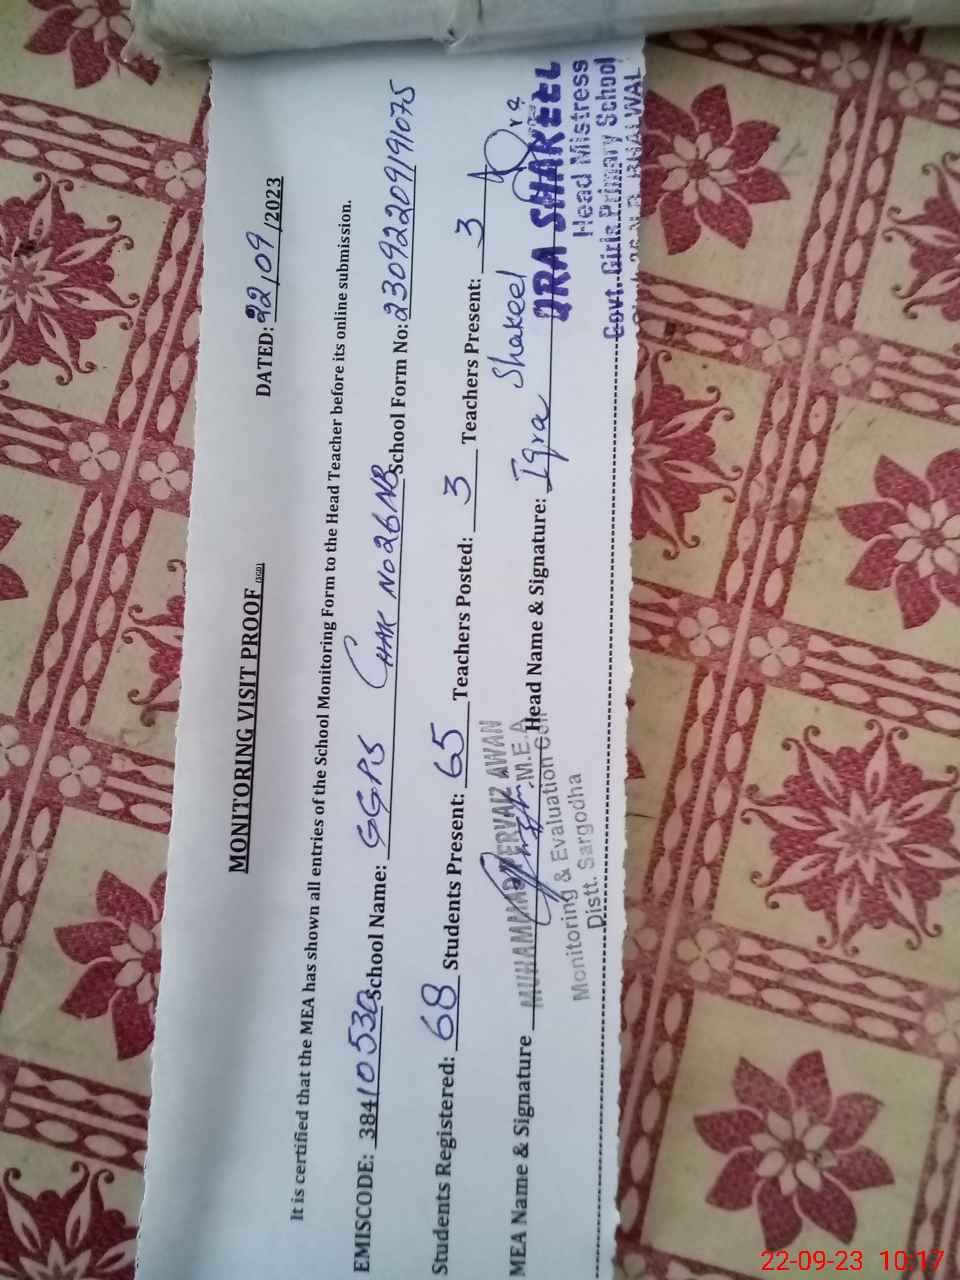 MONITORING VISIT PROOF (SGD)
DATED: 22/09/2023
It is certified that the MEA has shown all entries of the School Monitoring Form to the Head Teacher before its online submission.
EMISCODE: 38410530 School Name: GGPS CHAK No 26 NB School Form No: 23092209191075
Students Registered: 68 Students Present: 65 Teachers Posted: 3 Teachers Present: 3
MEA Name & Signature MUHAMMAD PERVAIZ AWAN Head Name & Signature: Iqra Shakeel
M.E.A
Monitoring & Evaluation Cell
Distt. Sargodha
IQRA SHAKEEL
Head Mistress
Govt. Girls Primary School
26 N.B. BHALWAL
22-09-23 10:17